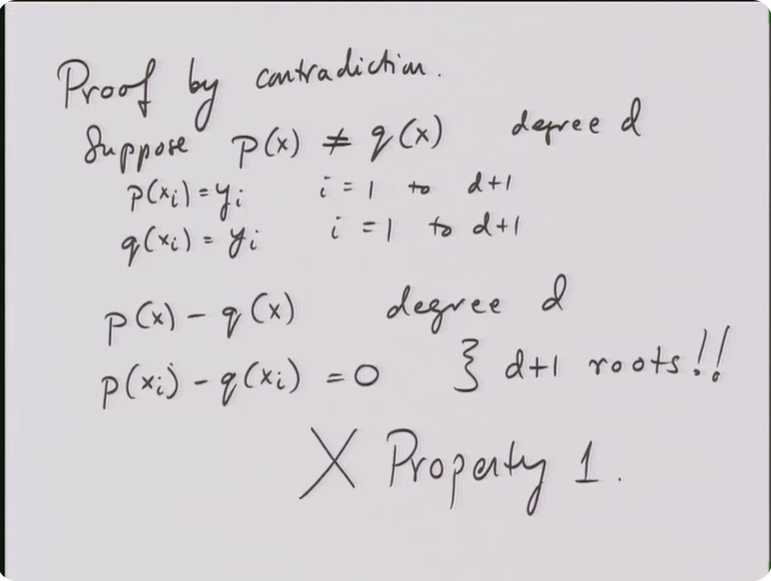 Proof by contradiction.
Suppose p(x) ≠ q(x) degree d
p(xᵢ) = yᵢ i = 1 to d+1
q(xᵢ) = yᵢ i = 1 to d+1
p(x) − q(x) degree d
p(xᵢ) − q(xᵢ) = 0 } d+1 roots!!
X Property 1.